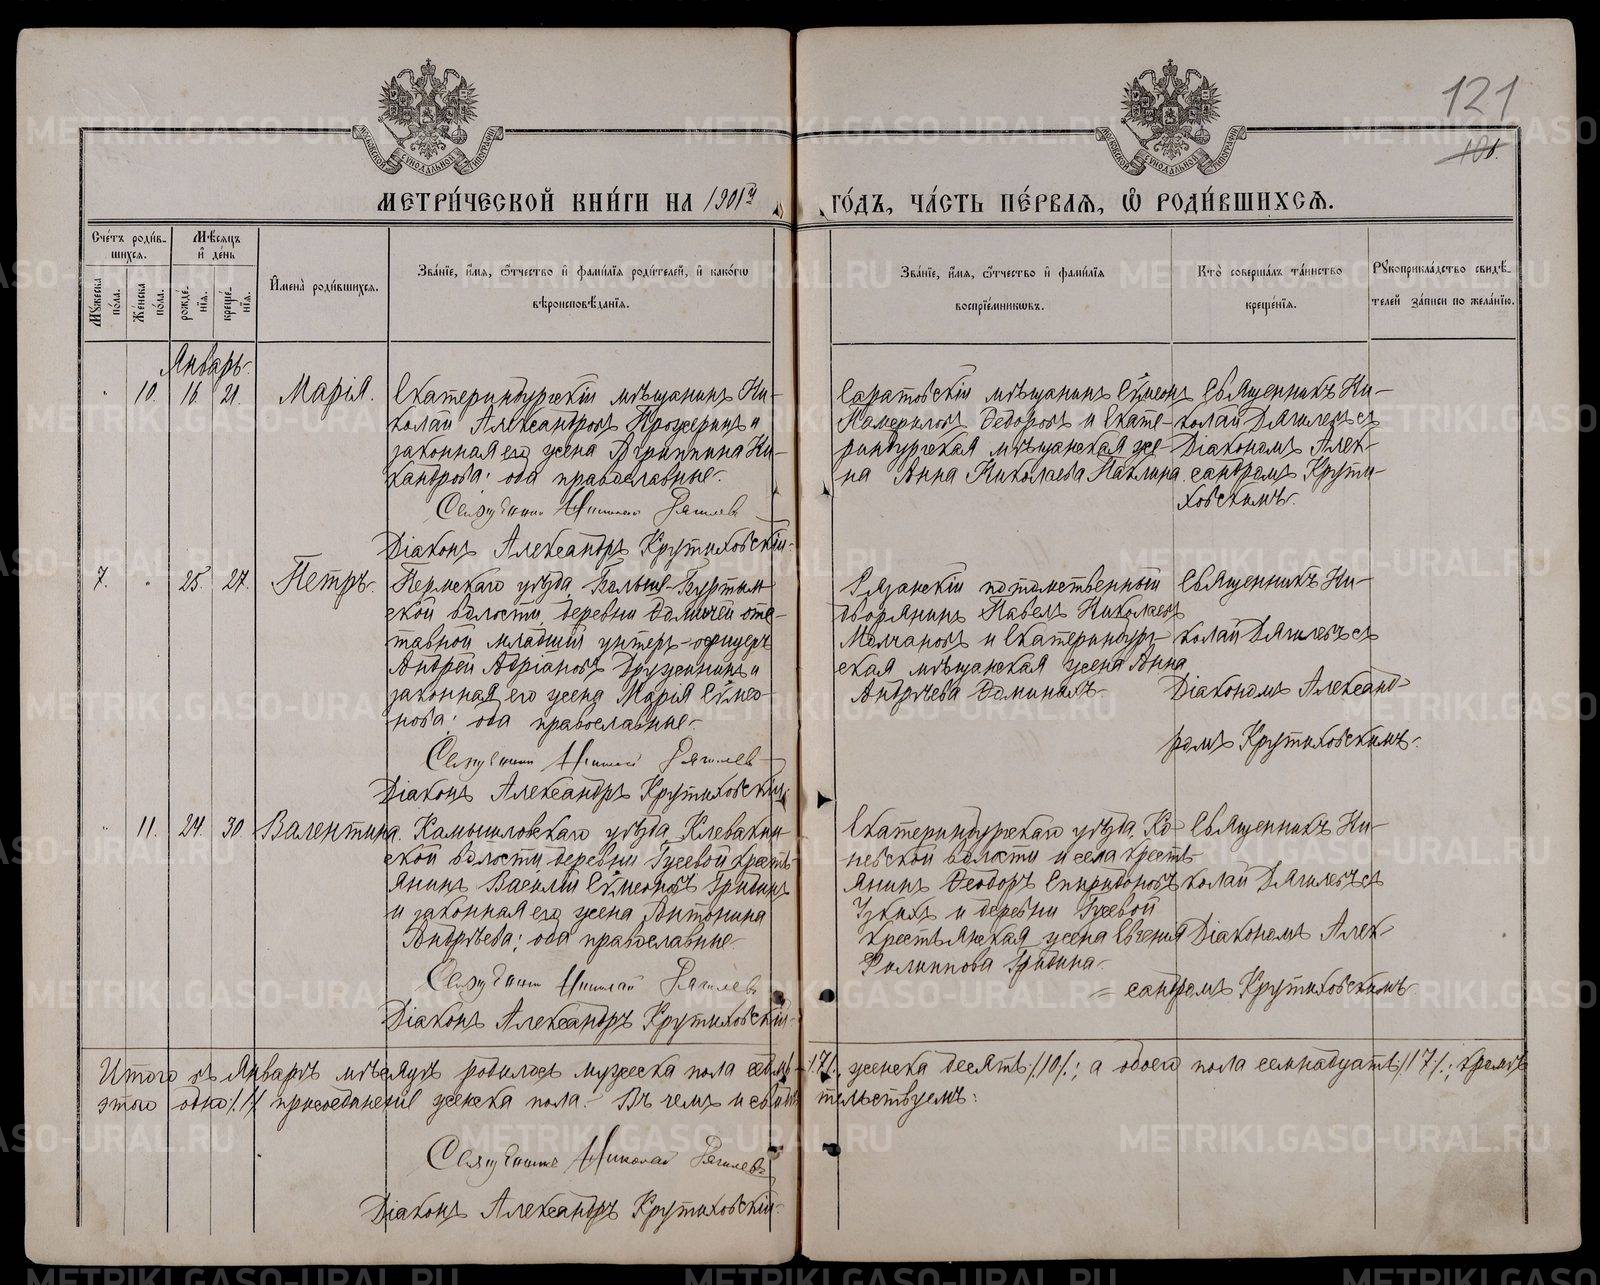 121
101.
МЕТРИ́ЧЕСКОЙ КНИ́ГИ НА 1901й ГО́ДЪ, ЧА́СТЬ ПЕ́РВАЯ, Ѡ РОДИ́ВШИХСЯ.
Сче́тъ роди́в-
шихся.
Мꙋ́жеска по́ла.
Же́нска по́ла.
Мѣ́сяцъ
и҆ де́нь
рожде́-нїя.
креще́-нїя.
И҆мена̀ роди́вшихся.
Зва́нїе, и҆́мя, ѻ҆́тчество и҆ фами́лїя роди́телей, и҆ како́гѡ
вѣроисповѣ́данїя.
Зва́нїе, и҆́мя, ѻ҆́тчество и҆ фами́лїя
воспрїе́мникѡвъ.
Кто̀ соверша́лъ та́инство
креще́нїя.
Рꙋкоприкла́дство свидѣ́-
телей за́писи по жела́нїю.
Январь.
10. 16 21. Марія.
Екатеринбургскій мѣщанинъ Ни-
колай Александровъ Прожеринъ и
законная его жена Агриппина Ни-
кандрова; оба православные.
Священникъ Николай Дягилевъ
Діаконъ Александръ Крутиховскій.
Саратовскій мѣщанинъ Сѵмеонъ
Ѳедоровъ и Екате-
ринбургская мѣщанская же-
на Анна Николаева Павлина.
Священникъ Ни-
колай Дягилевъ съ
Діакономъ Алек-
сандромъ Крути-
ховскимъ.
7. 25. 27. Петръ.
Пермскаго уѣзда,
ской волости, деревни отс-
тавной младшій унтеръ-офицеръ
Андрей Адріановъ Дружининъ и
законная его жена Марія Сѵмео-
нова; оба православные.
Священникъ Николай Дягилевъ
Діаконъ Александръ Крутиховскій.
Рязанскій потомственный
дворянинъ Павелъ Николаевъ
Молчановъ и Екатеринбург-
ская мѣщанская жена Анна
Андреева
Священникъ Ни-
колай Дягилевъ съ
Діакономъ Александ-
ромъ Крутиховскимъ.
11. 24. 30. Валентина.
Камышловскаго уѣзда, Клевакин-
ской волости, деревни Гусевой кресть-
янинъ Василій Сѵмеоновъ Грибинъ
и законная его жена Антонина
Андреева; оба православные.
Священникъ Николай Дягилевъ
Діаконъ Александръ Крутиховскій.
Екатеринбургскаго уѣзда, Ко-
невской волости и села кресть-
янинъ Ѳеодоръ Спиридоновъ
Узкихъ и деревни Гусевой
крестьянская жена Евгенія
Филиппова Грибина.
Священникъ Ни-
колай Дягилевъ съ
Діакономъ Алек-
сандромъ Крутиховскимъ.
Итого въ Январѣ мѣсяцѣ родилось мужеска пола седмь /:7:/, женска десять /:10:/; а обоего пола семнадцать /:17:/; кромѣ
этого одно /:1:/ присоединеніе женска пола. Въ чемъ и свидѣтельствуемъ:
Священникъ Николай Дягилевъ
Діаконъ Александръ Крутиховскій.
METRIKI.GASO-URAL.RU